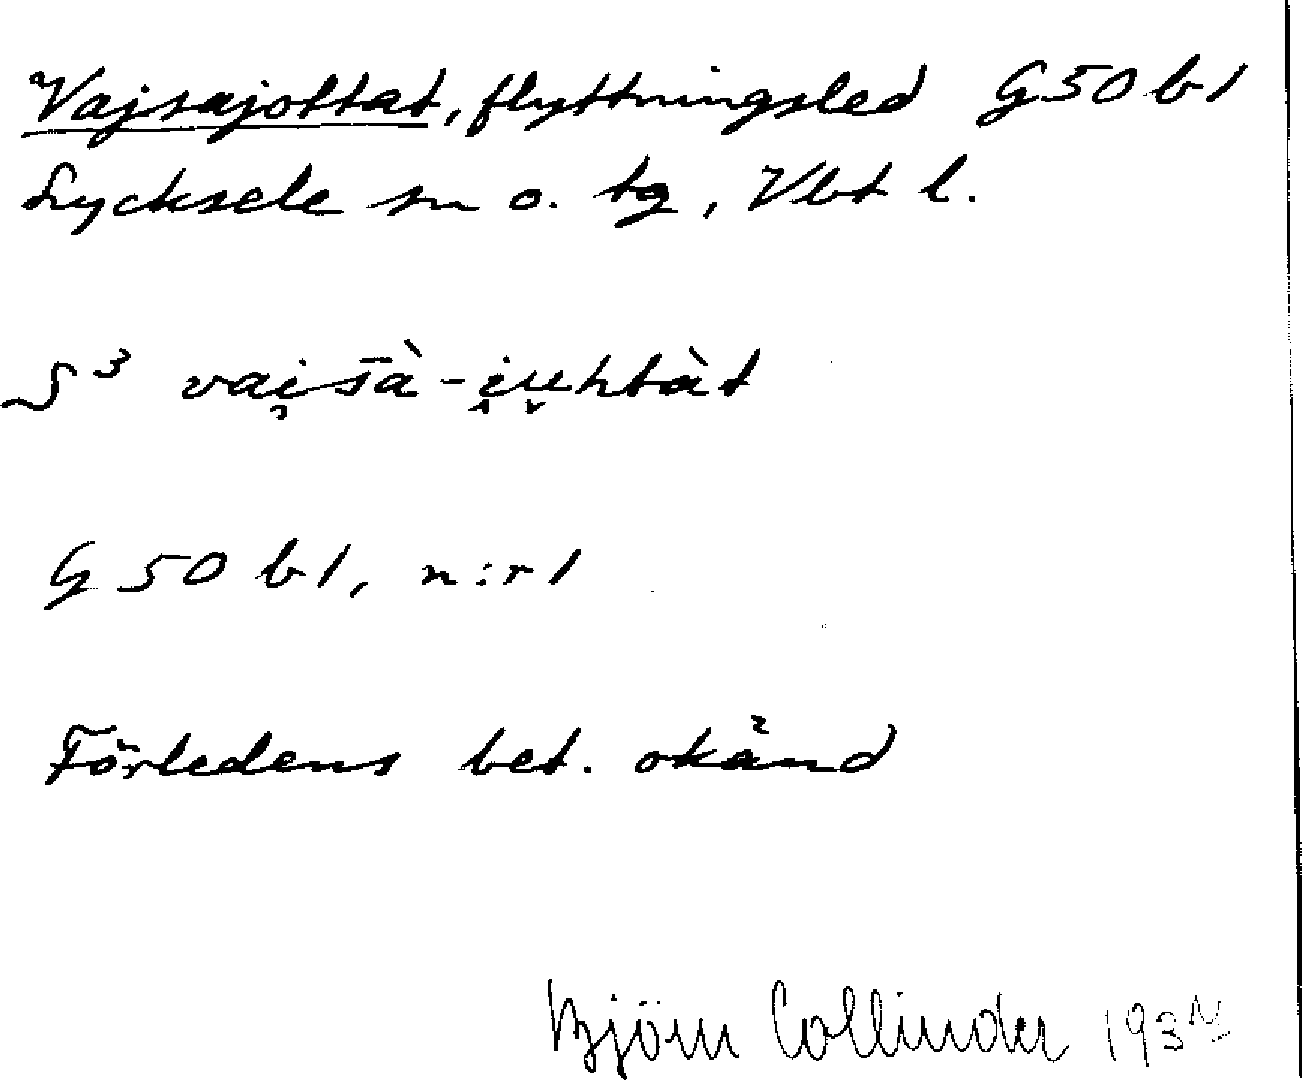 Vajsajottat, flyttningsled G50 b1
Lycksele sn o. tg, Vbt l.
S³ vai̯s̄à-i̯u̯htàt
G 50 b 1, n:r 1
Förledens bet. okänd
Björn Collinder